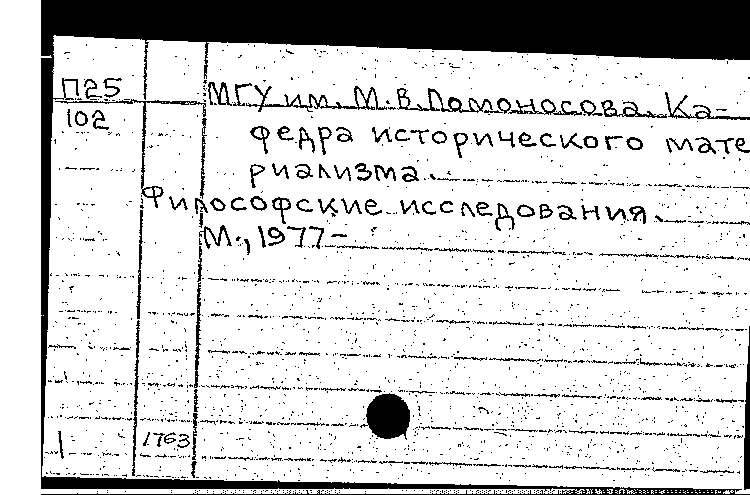 П25
102
МГУ им. М.В.Ломоносова. Ка-
федра исторического мате
риализма.
Философские исследования.
М., 1977-
1
1763